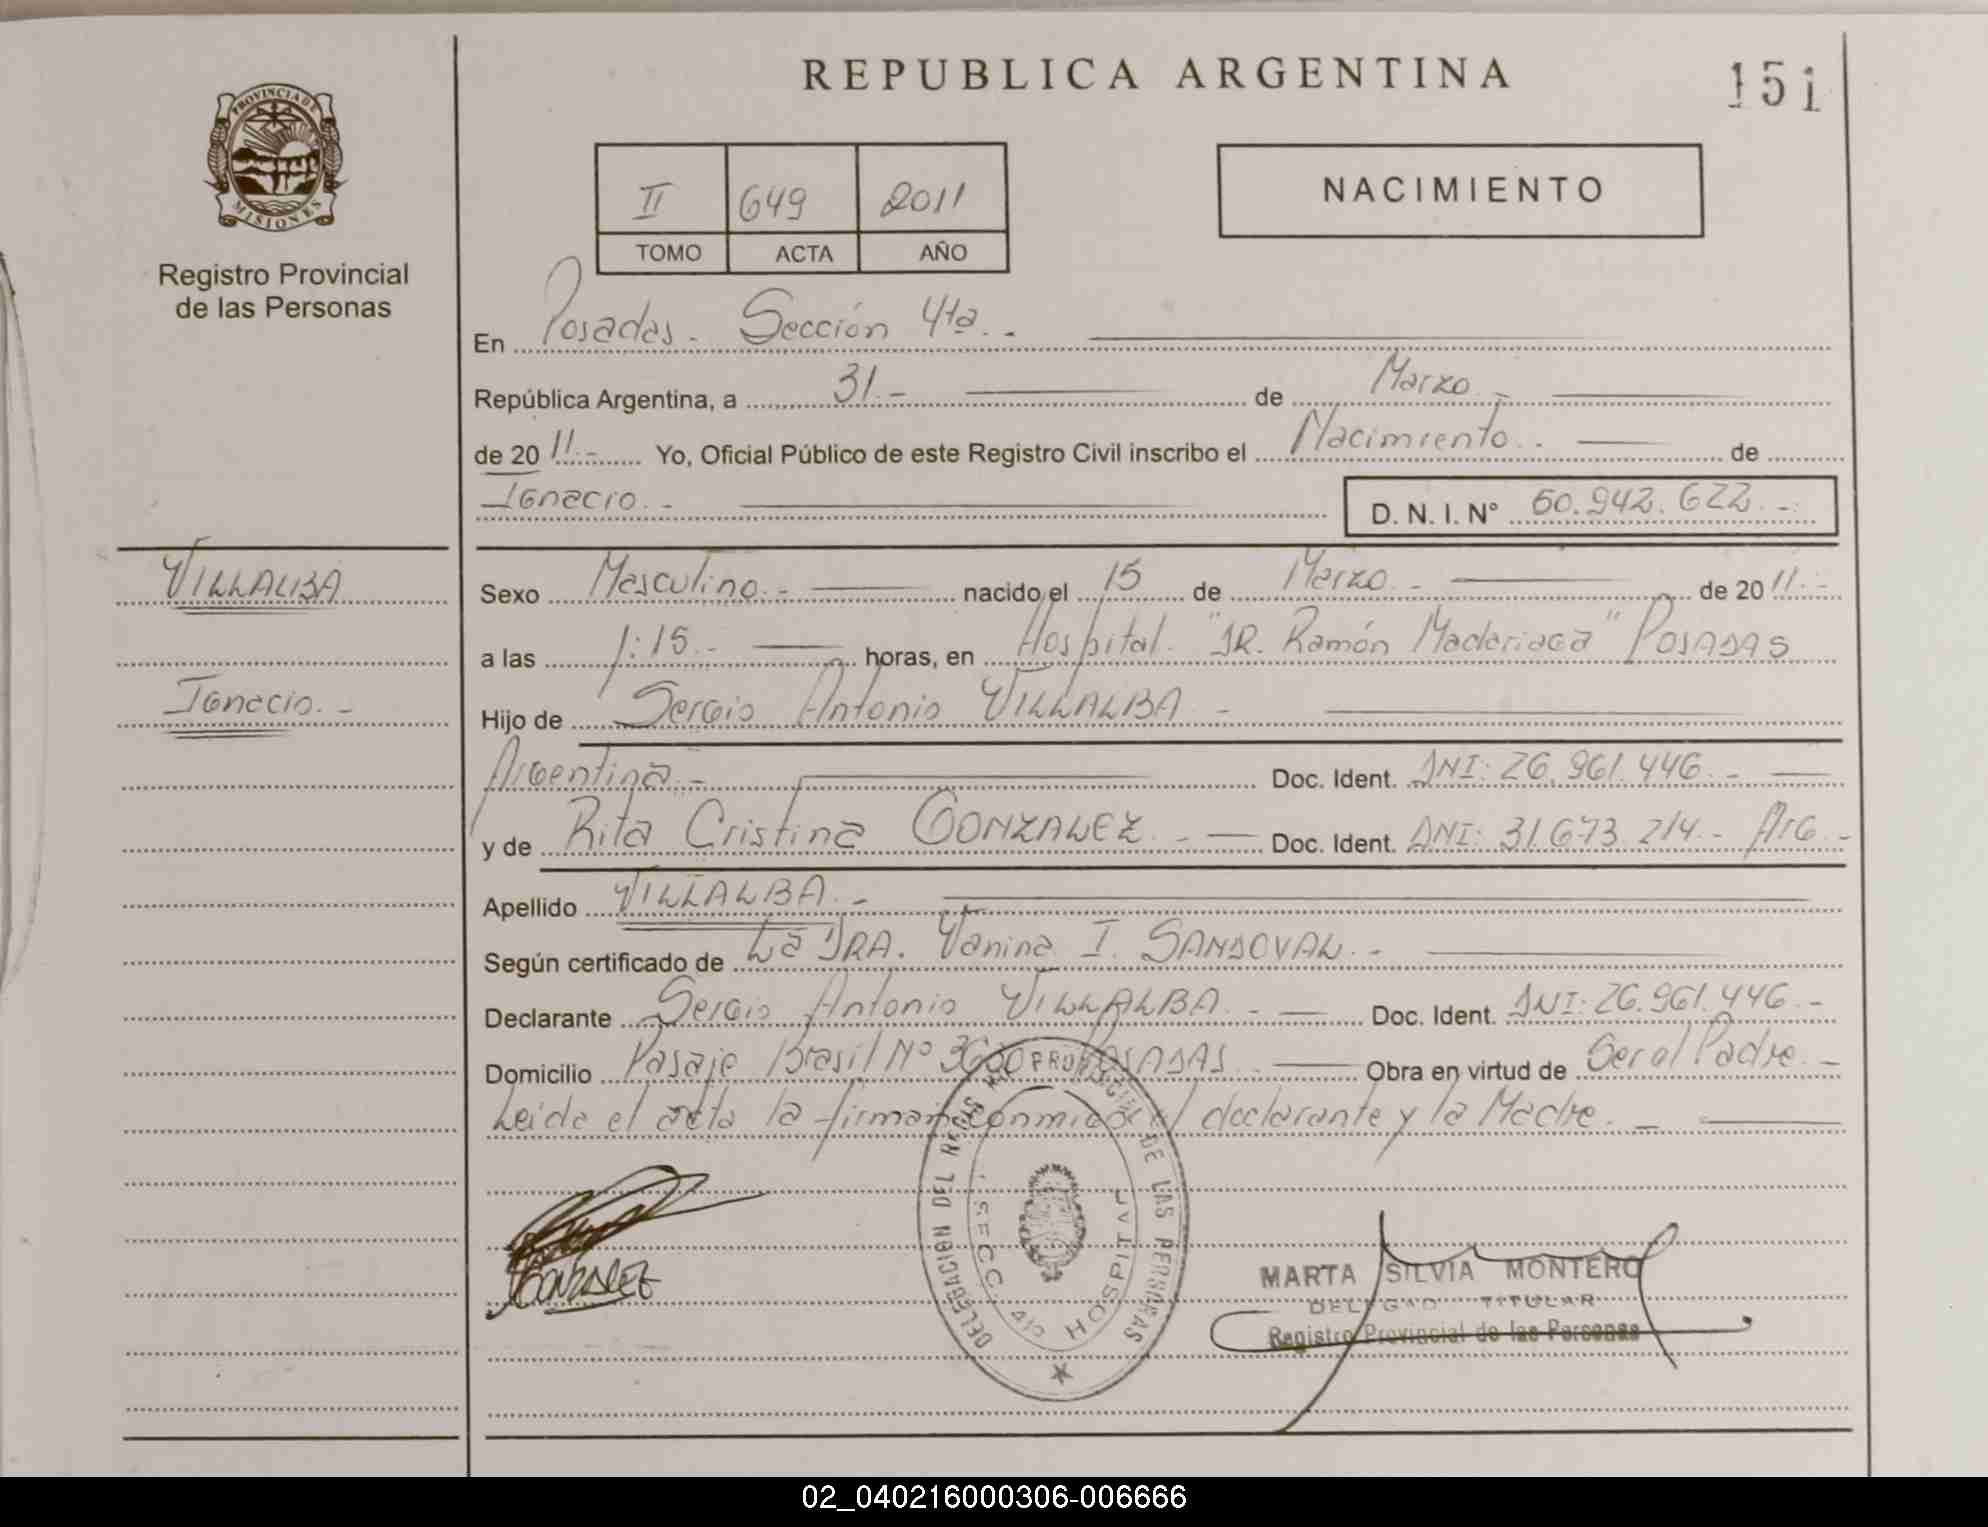 REPUBLICA ARGENTINA
151
PROVINCIA DE
MISIONES
Registro Provincial
de las Personas
II 649 2011
TOMO ACTA AÑO
NACIMIENTO
En Posadas.- Sección 4ta.-
República Argentina, a 31.- de Marzo.-
de 20 11.- Yo, Oficial Público de este Registro Civil inscribo el Nacimiento.- de
Ignacio.- D. N. I. N° 50.942.622.-
VILLALBA
Ignacio.-
Sexo Masculino.- nacido el 15 de Marzo.- de 20 11.-
a las 1:15.- horas, en Hospital "DR. Ramón Madariaga" POSADAS
Hijo de Sergio Antonio VILLALBA.-
Argentina.- Doc. Ident. DNI: 26.961.446.-
y de Rita Cristina GONZALEZ.- Doc. Ident. DNI: 31.673.214.- Arg.-
Apellido VILLALBA.-
Según certificado de La DRA. Vanina I. SANDOVAL.-
Declarante Sergio Antonio VILLALBA.- Doc. Ident. DNI: 26.961.446.-
Domicilio Pasaje Brasil Nº POSADAS.- Obra en virtud de Ser el Padre.-
Leida el acta la firman conmigo el declarante y la Madre.-
DELEGACION DEL REGISTRO PROVINCIAL DE LAS PERSONAS
SECC. 4ta HOSPITAL
GONZALEZ
MARTA SILVIA MONTERO
DELEGADO TITULAR
Registro Provincial de las Personas
02_040216000306-006666